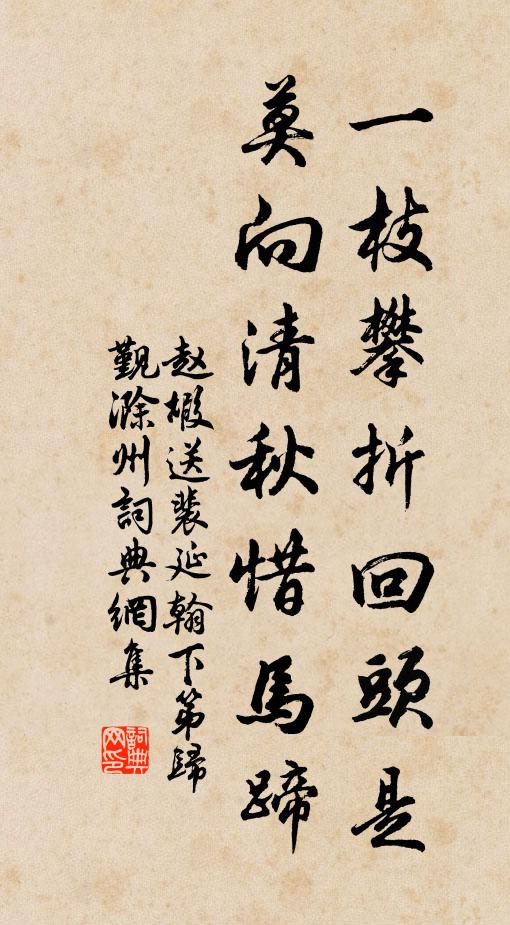 一枝攀折回頭是
莫向清秋惜馬蹄
赵嘏送裴延翰下第歸
觐滁州詞典網集
詞典网印